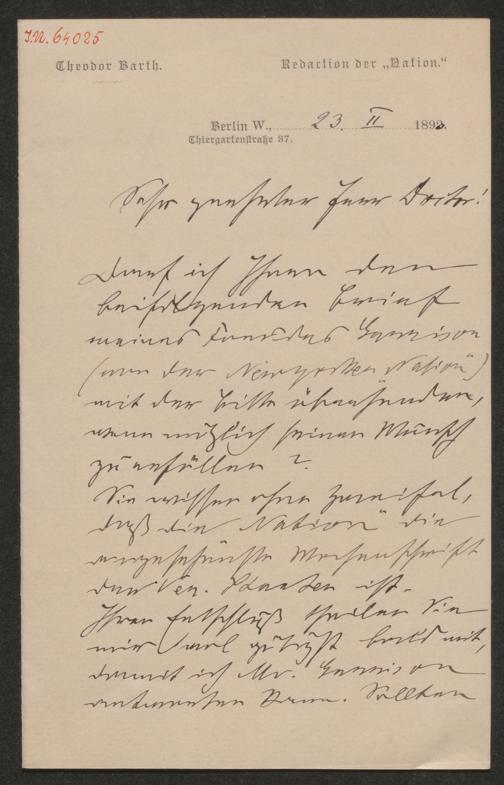 J.N. 64025
Theodor Barth.
Redaction der „Nation.“
Berlin W., 23. II 1892.
Thiergartenstraße 37.
Sehr geehrter Herr Doctor!
Darf ich Ihnen den
beifolgenden Brief
meines Freundes Garrison
(von der Newyorker Nation)
mit der Bitte übersenden,
wenn möglich seinen Wunsch
zu erfüllen?
Sie wissen ohne Zweifel,
daß die „Nation“ die
angesehenste Wochenschrift
der Ver. Staaten ist.
Ihren Entschluß theilen Sie
mir wol gütigst bald mit,
damit ich Mr. Garrison
antworten kann. Sollten